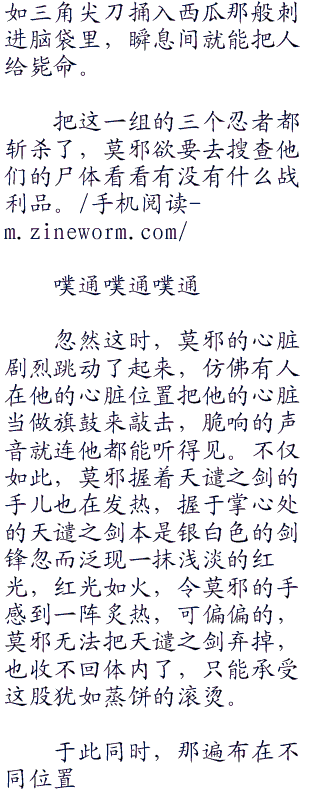 如三角尖刀捅入西瓜那般刺
进脑袋里，瞬息间就能把人
给毙命。
把这一组的三个忍者都
斩杀了，莫邪欲要去搜查他
们的尸体看看有没有什么战
利品。/手机阅读-
m.zineworm.com/
噗通噗通噗通
忽然这时，莫邪的心脏
剧烈跳动了起来，仿佛有人
在他的心脏位置把他的心脏
当做旗鼓来敲击，脆响的声
音就连他都能听得见。不仅
如此，莫邪握着天谴之剑的
手儿也在发热，握于掌心处
的天谴之剑本是银白色的剑
锋忽而泛现一抹浅淡的红
光，红光如火，令莫邪的手
感到一阵炙热，可偏偏的，
莫邪无法把天谴之剑弃掉，
也收不回体内了，只能承受
这股犹如蒸饼的滚烫。
于此同时，那遍布在不
同位置